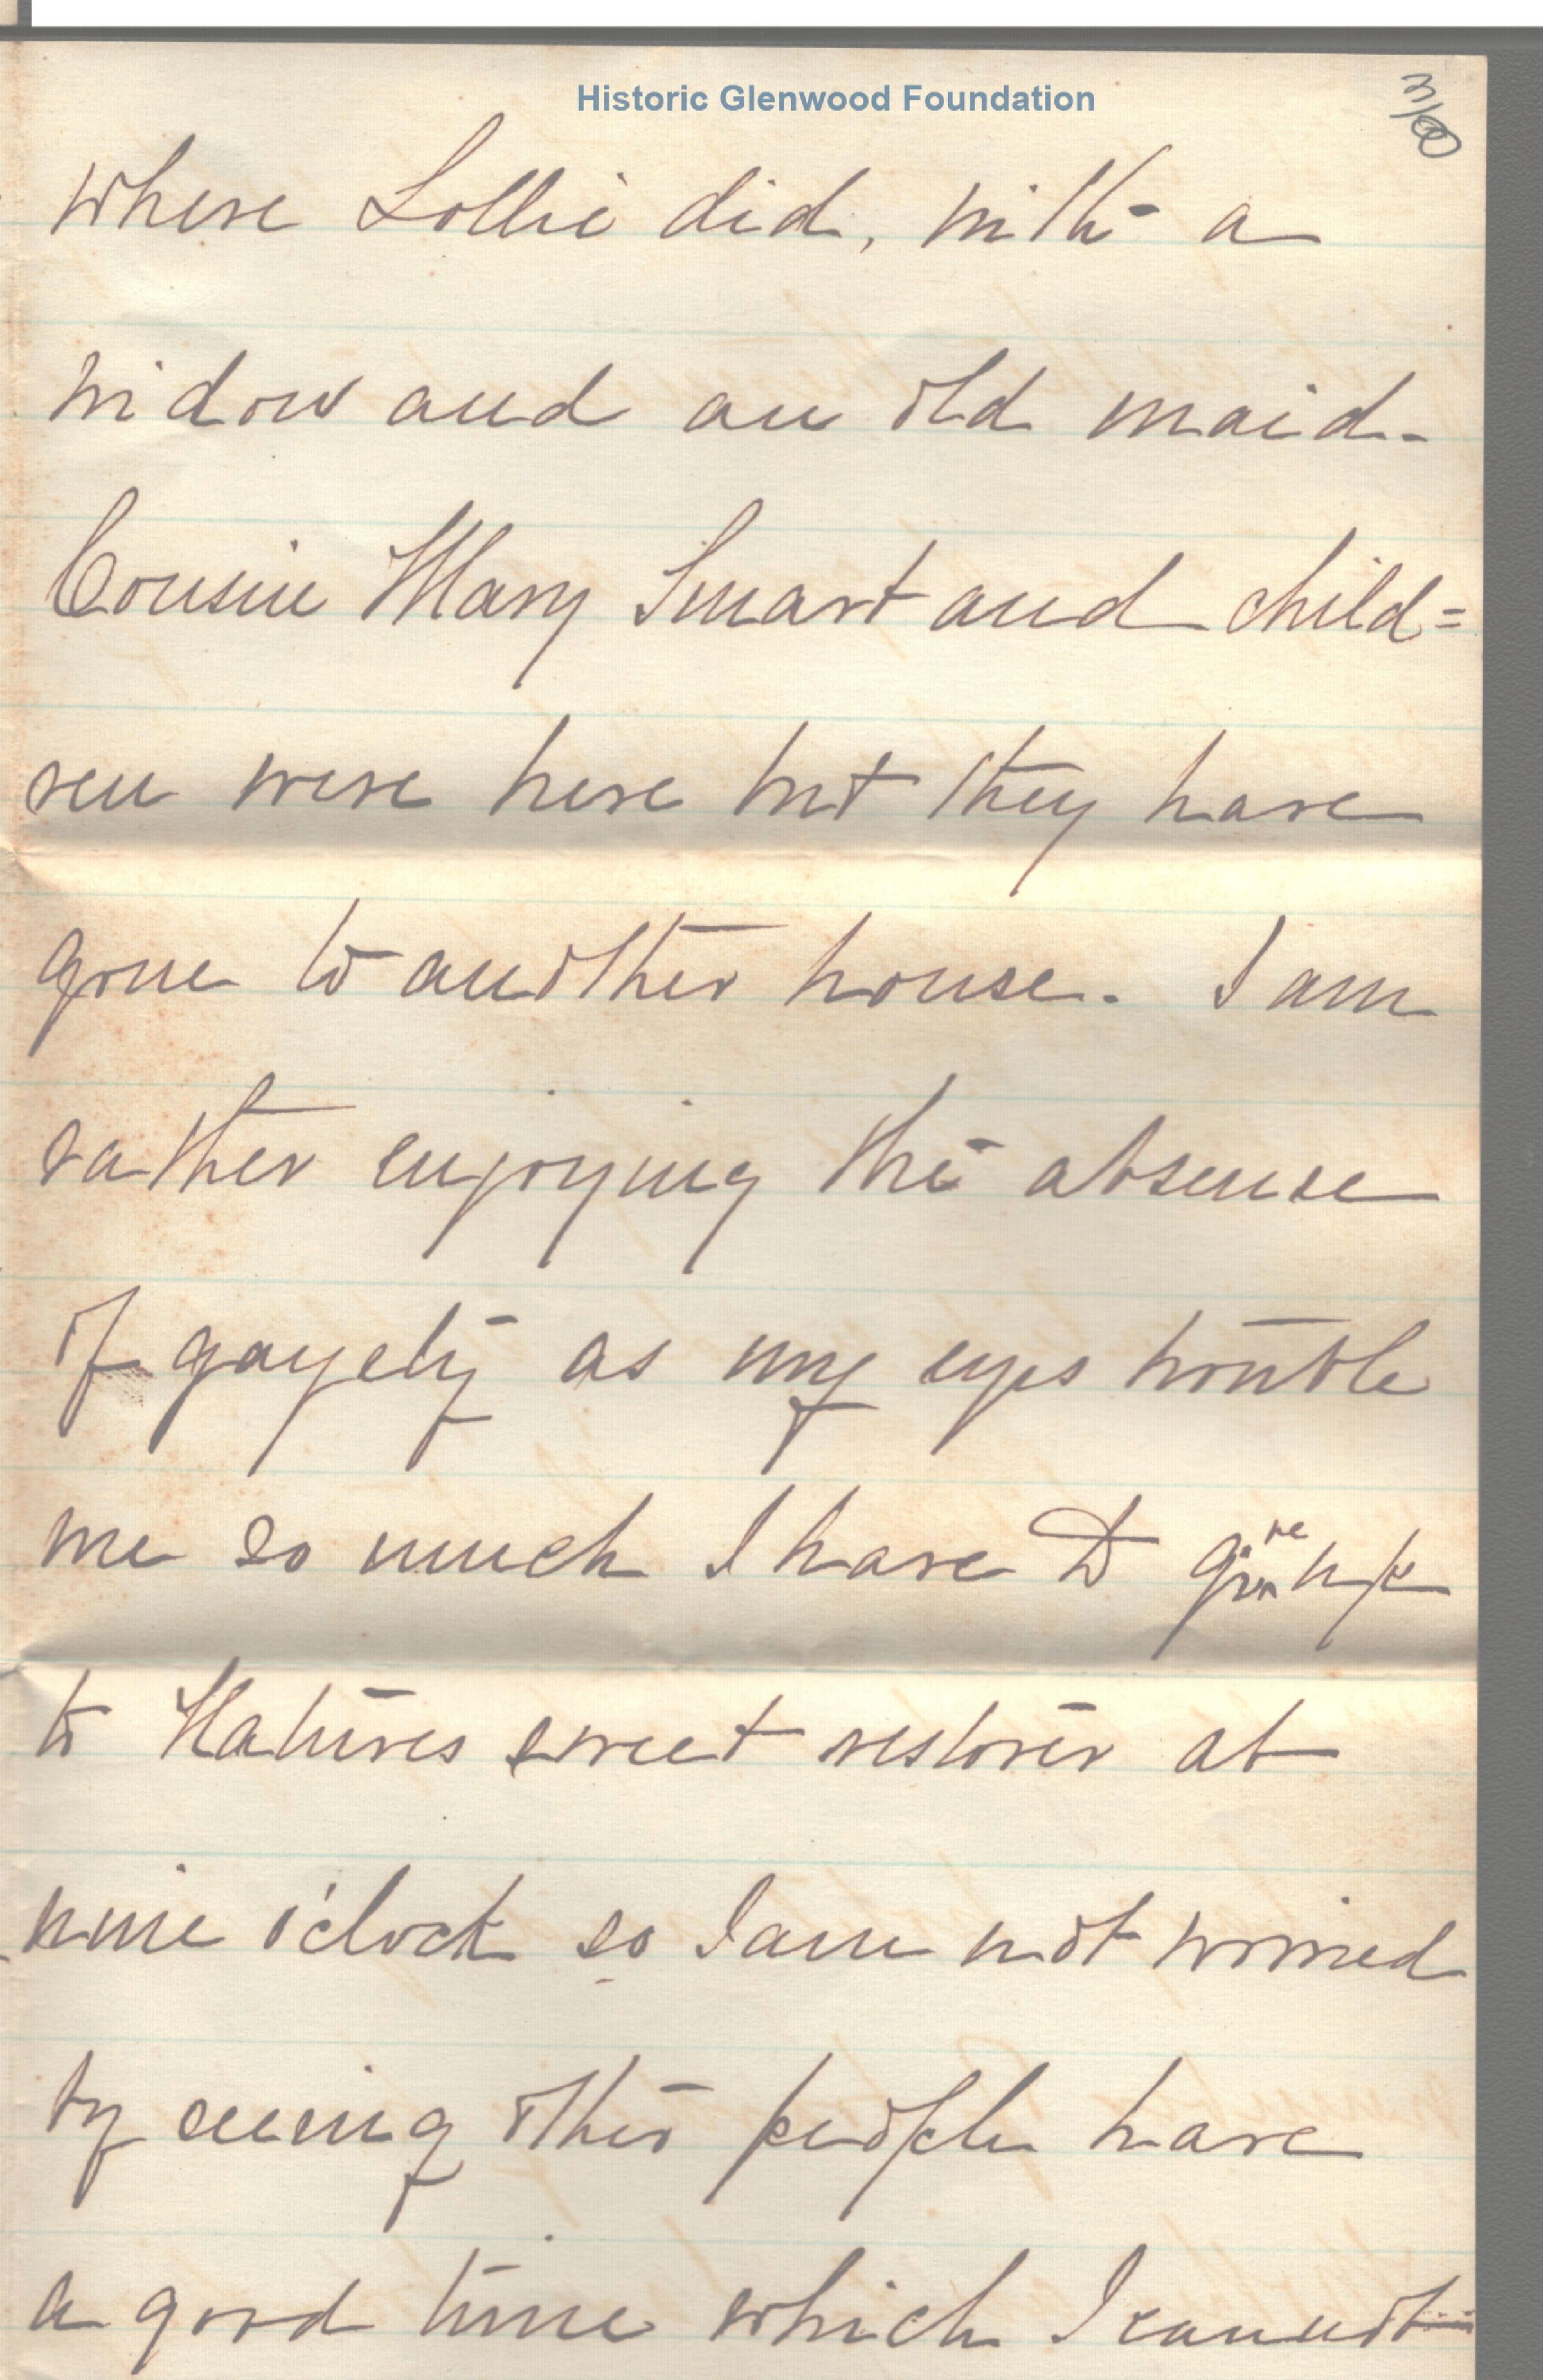 Historic Glenwood Foundation
3/00
where Lollie did, with a
widow and an old maid.
Cousin Mary Smart and child=
ren were here but they have
gone to another house. I am
rather enjoying the absence
of gayety as my eyes trouble
me so much I have to give up
to Natures sweet restorer at
nine o'clock so I am not worried
by seeing other people have
a good time which I cannot